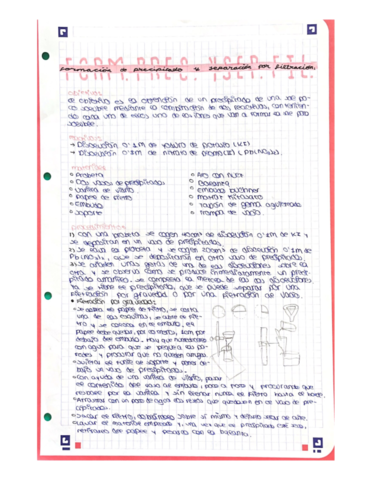 FORM. PRES. Y SEP. FIL.
Formación de precipitado y separación por filtración.
Objetivos
El objetivo es la obtención de un precipitado de una sal po-
co soluble mediante la combinación de dos reactivos, contenien-
do cada uno de ellos uno de los iones que van a formar la sal poco
soluble.
Reactivos
→ Disolución 0'1M de yoduro de potasio (KI)
→ Disolución 0'1M de nitrato de plomo (II) (Pb(NO3)2).
Materiales
Probeta
Dos vasos de precipitados
Varilla de vidrio
Papel de filtro
Embudo
Soporte
Aro con nuez
Balanza
Embudo büchner
Matraz kitasato
Tapón de goma agujereado
Trompa de vacío.
Procedimiento
1) Con una probeta se cogen de disolución 0'1M de KI y
se depositan en un vaso de precipitados.
2) Se lava la probeta y se cogen de disolución 0'1M de
Pb(NO3)2, que se depositarán en otro vaso de precipitados.
3) Se añaden unas gotas de una de las disoluciones sobre la
otra, y se observa como se produce inmediatamente un preci-
pitado amarillo. Se completa la mezcla de las dos disoluciones.
Ya se tiene el precipitado, que se puede separar por una
filtración por gravedad o por una filtración de vacío.
Filtración por gravedad:
Se dobla el papel de filtro, se corta
una de las esquinas, se abre el fil-
tro y se coloca en el embudo. El
papel debe quedar, por lo menos, 1cm por
debajo del embudo. Hay que humedecerlo
con agua para que se pegue a las pa-
redes y procurar que no queden
de soporte y
bajo un vaso de precipitados.
Con ayuda de una varilla de vidrio, pasar
el contenido del vaso al embudo, poco a poco y procurando que
resbale por la varilla y sin llenar nunca el filtro hasta el borde.
Arrastrar con un poco de agua los restos que queden en el vaso de pre-
cipitados.
Sacar el filtro, sobre sí mismo y dejarlo secar al aire.
el material empleado y, una vez que el precipitado esté seco,
retirarlo del papel y pesarlo con la balanza.